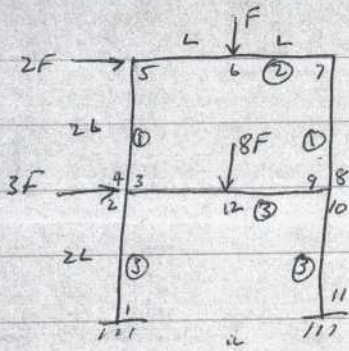 F
L L
2F 5 6 ② 7
2L ① ①
8F
3F 4 3 9 8
2 12 ③ 10
2L ③ ③
1 11